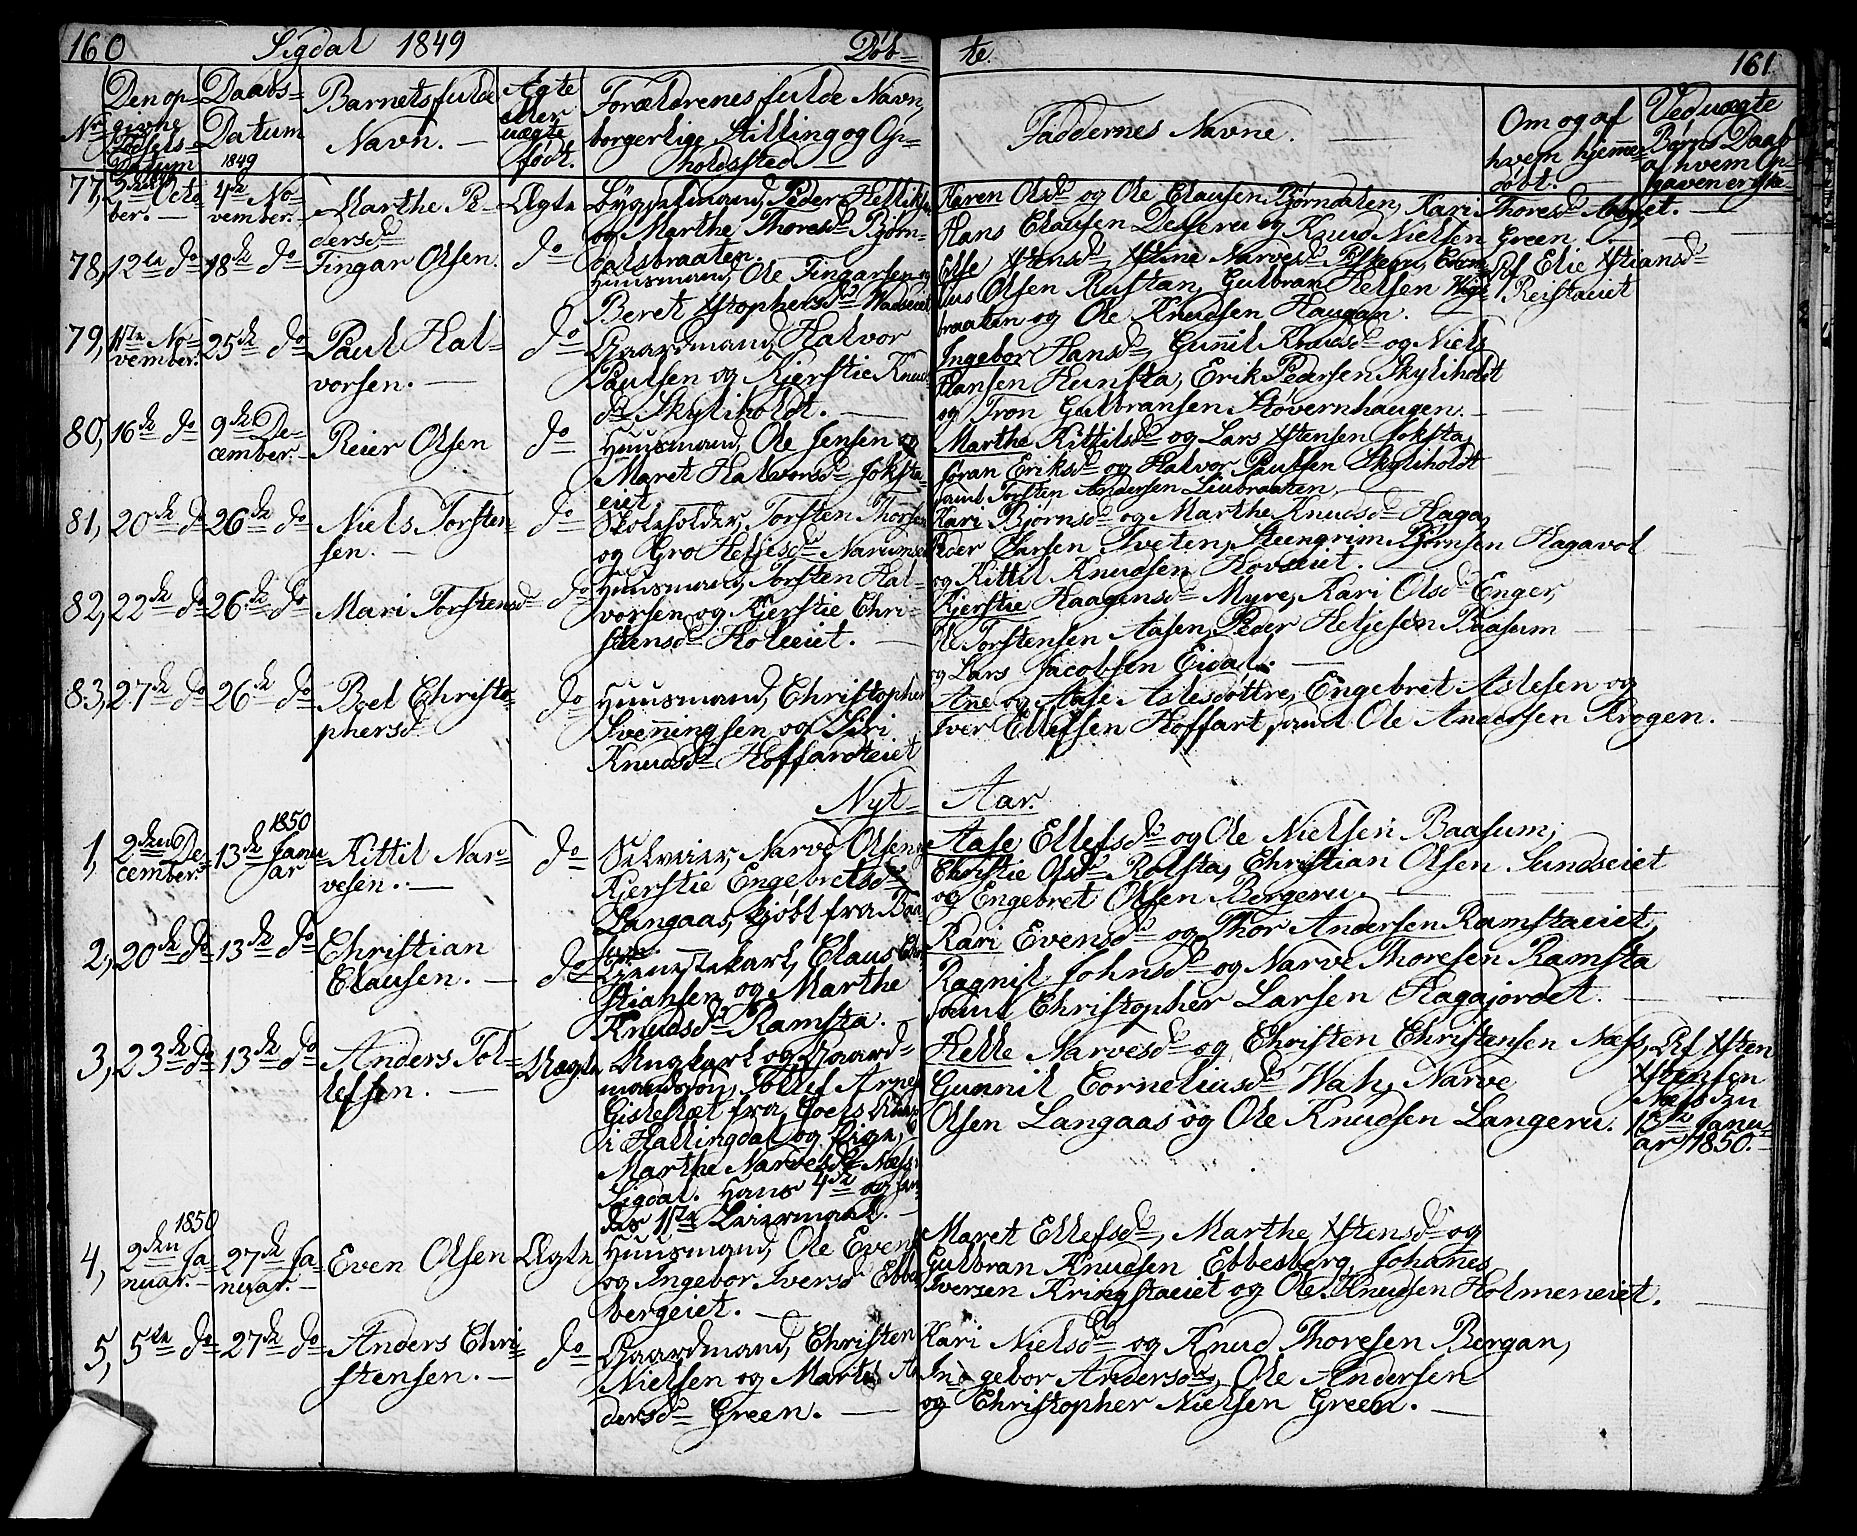 160 Sigdal 1849 Døb= te. 161
No Den op= givne Fødsels= Datum
Daabs= Datum
Barnets fulde Navn. —
Ægte eller uægte født.
Forældrenes fulde Navn, borgerlige Stilling og Op= holdssted
Faddernes Navne. —
Om og af hvem hjemme døbt. —
Ved uægte Børns Daab af hvem Op= gaven er ske=
77, Octo= ber. — 1849 4de No= vember. —
Marthe Pe= dersd
Ægte
Bygselmand, Peder
og Marthe Thoresd Bjørn=
dalsbraaten.
Karen Olsd og Ole Clausen Bjørndalen, Kari Thoresd
Hans Clausen og Knud Nielsen Green. —
78, 12te do 18de do
Tingar Olsen.
do
Huusmand, Ole Tingarsen og
Beret Xstophersd
Else Narvesd
Olsen Rustan, Gulbran
braaten og Ole Knudsen Haugan. —
Af Elie Xstiansd
Reistaeiet
79, 11te No= vember. 25de do
Paul Hal=
vorsen. —
do
Gaardmand, Halvor
Paulsen og Kjerstie Knud
sd Skyliholdt. —
Ingebor Hansd, Gunnil Knudsd og Niels
Hansen Hunsta, Erik Pedersen Skyliholdt
og Tron Gulbransen Støvernhaugen. —
80, 16de do 9de De= cember. —
Reier Olsen
do
Huusmand, Ole Jensen og
Maret Halvorsd Joksta=
eiet
Marthe Kittilsd og Lars Xstensen Joksta,
Gøran Eriksd og Halvor Paulsen Skyliholdt
samt Torsten Andersen Liubraaten. —
81, 20de do 26de do
Niels Torsten=
sen. —
do
Skoleholder, Torsten Thorsen
og Gro Heljesd
Kari Bjørnsd og Marthe Knudsd Haga,
Peder Larsen Tveten, Steengrim Bjørnsen Hagavol
og Kittil Knudsen Hovdeiet. —
82, 22de do 26de do
Mari Torstensd
do
Huusmand, Torsten Hal=
vorsen og Kjerstie Chri=
stensd Holeeiet. —
Kjerstie Haagensd Myre, Kari Olsd Enger,
Ole Torstensen Aasen, Peder Heljesen Baasum
og Lars Jacobsen Eidal. —
83, 27de do 26de do
Boel Christo=
phersd
do
Huusmand, Christopher
Svenningsen og Siri
Knudsd Hoffardteiet
Ane og Aase Aslesdøttre, Engebret Aslesen og
Iver Ellefsen Hoffart, samt Ole Andersen Krogen.
Nyt= Aar.
1, 2den De= cember. 1850 13de Janu= ar
Kittil Nar=
vesen. —
do
Selveier, Narve Olsen og
Kjerstie Engebretsd
Langaas, kjøbt fra Baa
sum
Aase Ellefsd og Ole Nielsen Baasum,
Christie Olsd Rolsta, Christian Olsen Sundseiet
og Engebret Olsen Bergeru. —
2, 20de do 13de do
Christian
Clausen. —
do
Tjenestekarl, Claus Chri
stiansen og Marthe
Knudsd Ramsta. —
Kari Evensd og Thor Andersen Ramstaeiet,
Ragnil Johnsd og Narve Thoresen Ramsta
samt Christopher Larsen Hagajordet. —
3, 23de do 13de do
Anders Tol=
lefsen. —
Uægte
Ungkarl og Gaard=
mandssøn, Tollef Arnes
fra Goels
i Hallingdal og Pige,
Marthe Narvesd Næss
Sigdal. Hans 4de og hen
des 1ste Leiermaal. —
Helle Narvesd og Christen Christensen Næss,
Gunnil Corneliusd Narve
Olsen Langaas og Ole Knudsen Langeru.
Af Xsten
Xstensen
Næss den
13de Janu=
ar 1850. —
4, 1850 2den Ja= nuar. — 27de Ja= nuar. —
Even Olsen
Ægte
Huusmand, Ole Evens
og Ingebor Iversd Ebbes
bergeiet. —
Maret Ellefsd, Marthe Xstensd og
Gulbran Knudsen Ebbesberg, Johanes
Iversen Kringstaeiet og Ole Knudsen Holmeneiet.
5, 5te do 27de do
Anders Chri=
stensen. —
do
Gaardmand, Christen
Nielsen og Marte An
dersd Green. —
Kari Nielsd og Knud Thoresen Bergan,
Ingebor Andersd, Ole Andersen
og Christopher Nielsen Green. —